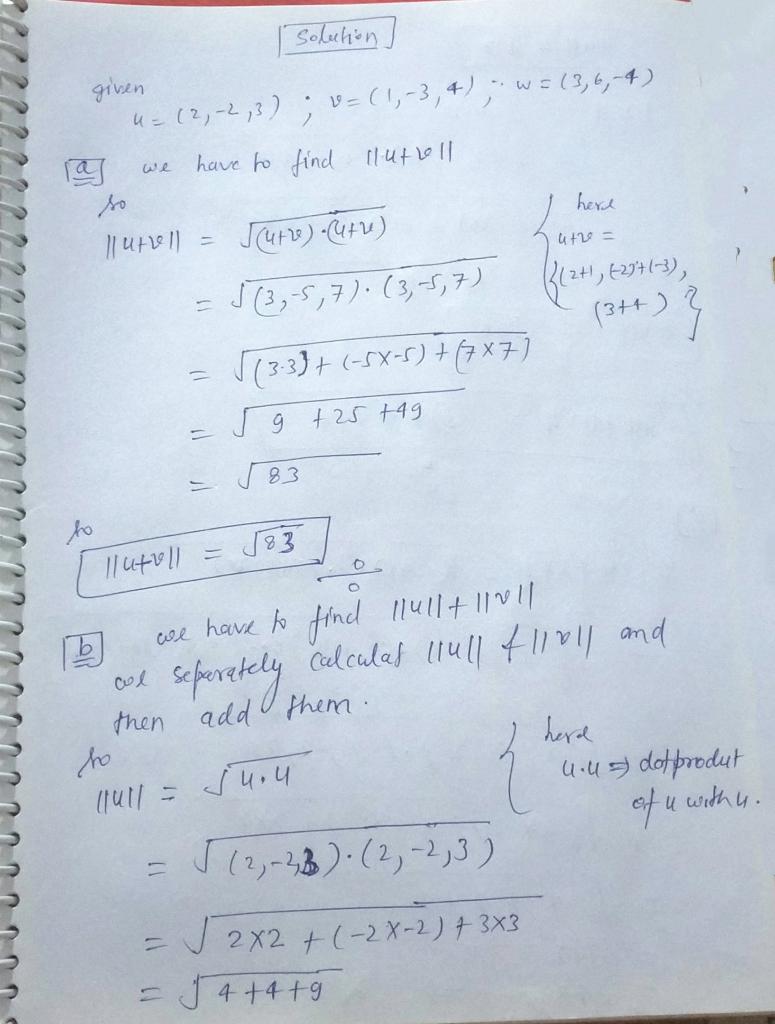 Solution
given
u = (2,-2,3) ; v = (1,-3,4) ; w = (3,6,-4)
a we have to find ||u+v||
so
||u+v|| = √(u+v)·(u+v)
{ here
u+v =
{(2+1, (-2)+(-3),
(3+4) }
= √(3,-5,7)·(3,-5,7)
= √(3·3)+(-5×-5)+(7×7)
= √9 +25 +49
= √83
so
||u+v|| = √83
b we have to find ||u||+||v||
we seperately calculat ||u|| & ||v|| and
then add them.
so
||u|| = √u.u
{ here
u.u ⇒ dotprodut
of u with u.
= √(2,-2,3)·(2,-2,3)
= √2×2 +(-2×-2)+3×3
= √4+4+9